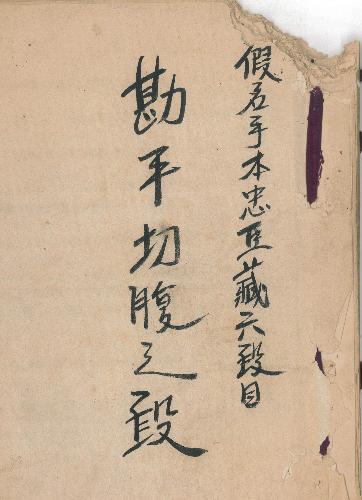 假名手本忠臣藏六段目
勘平切腹之段